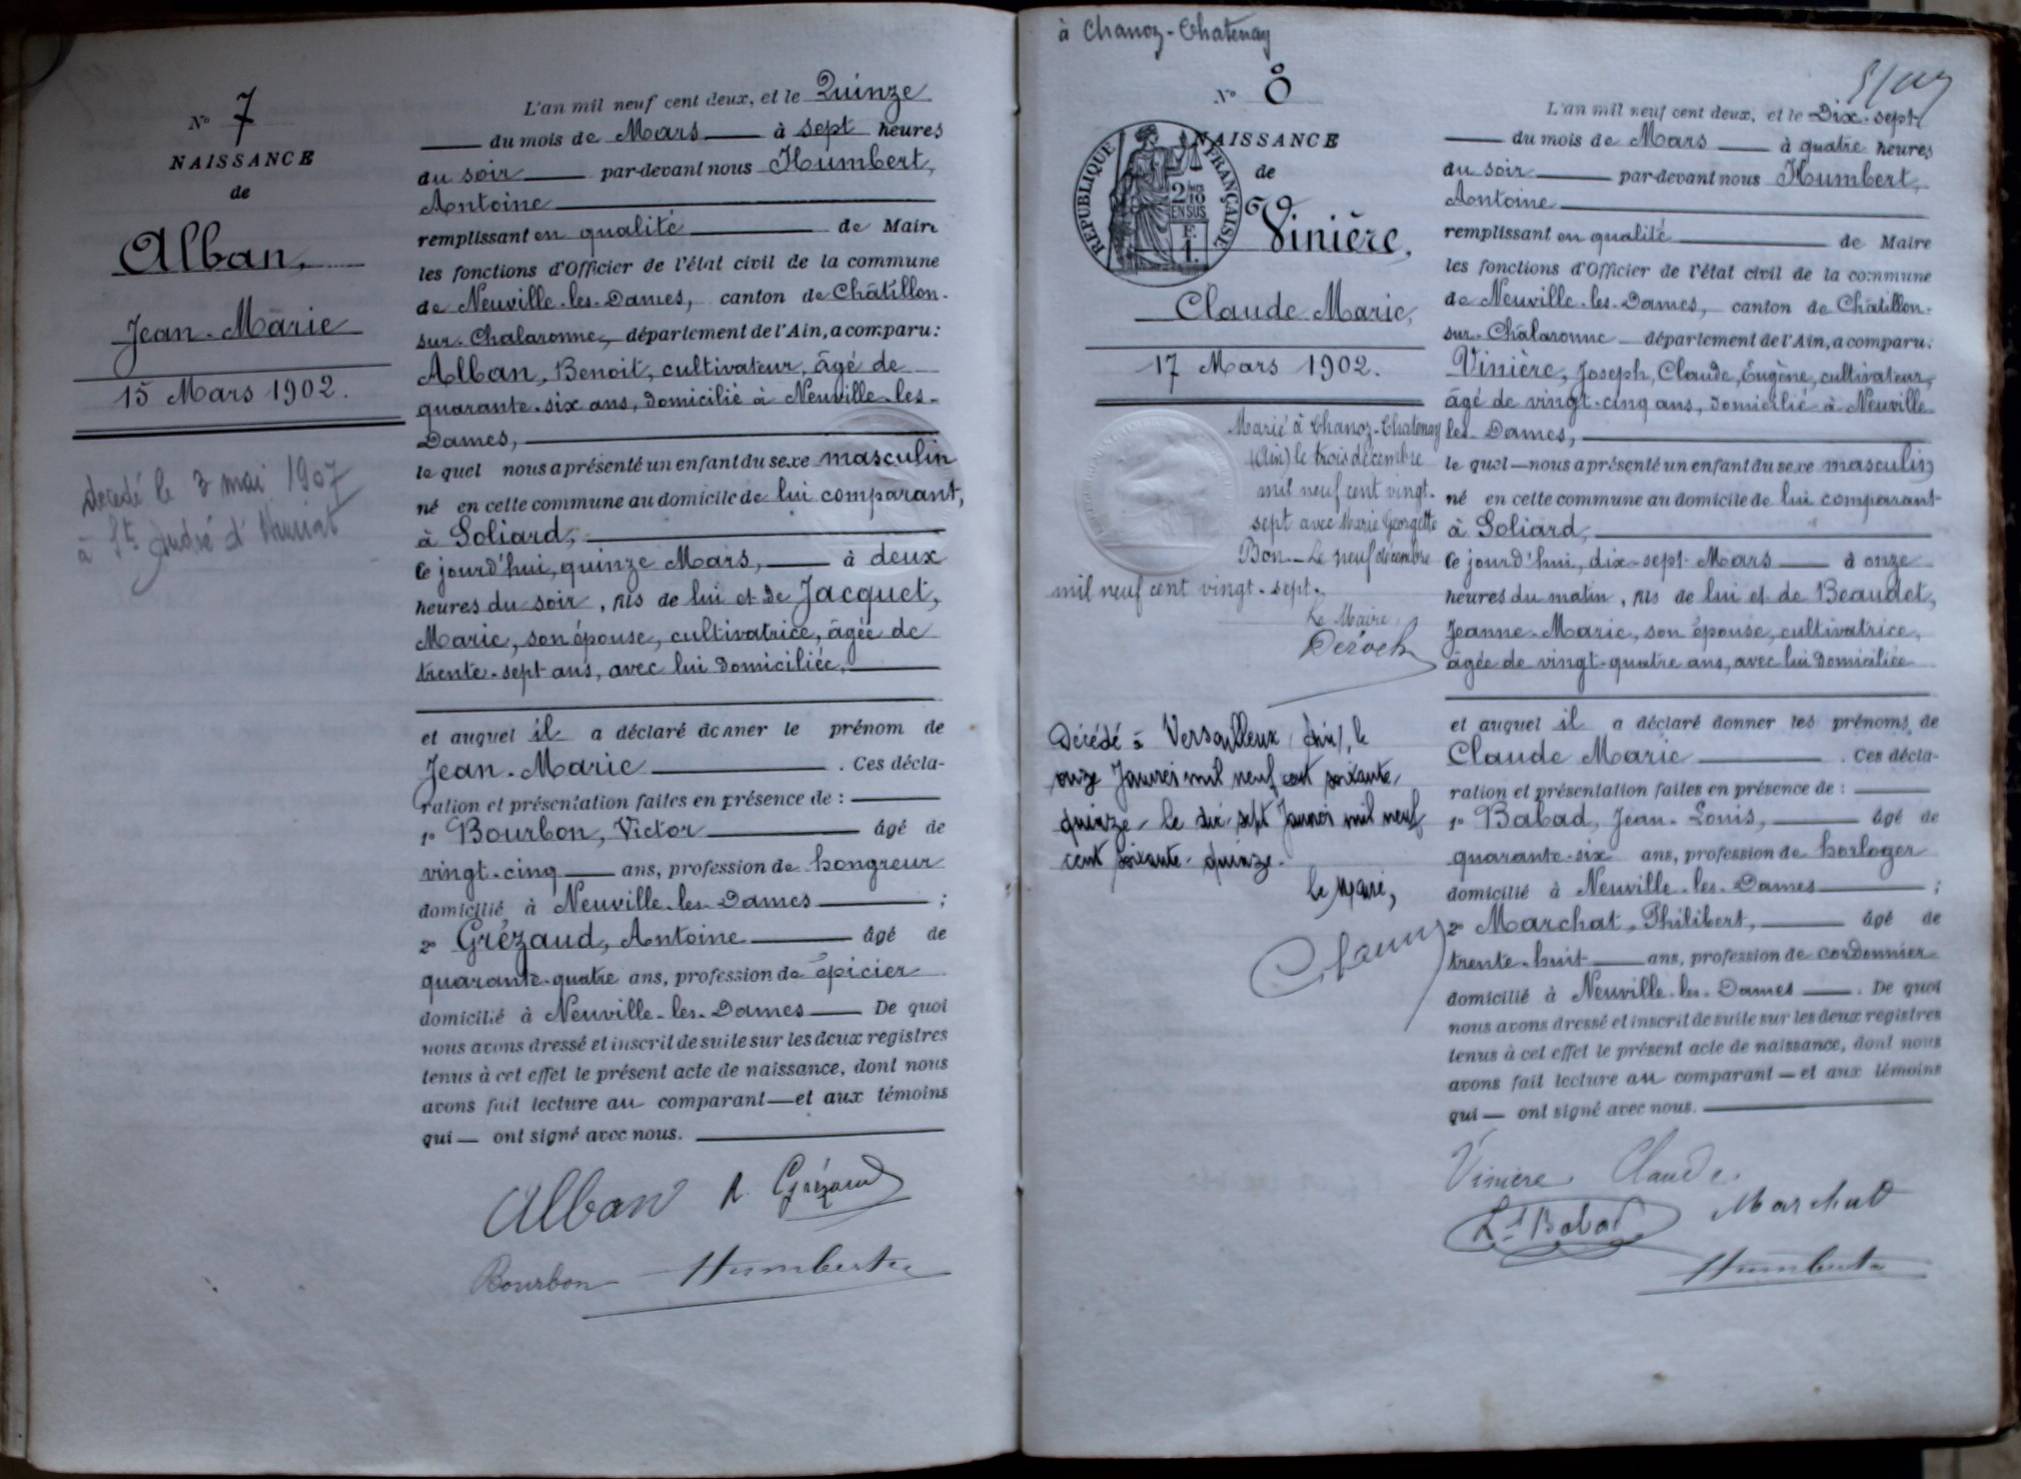 N° 7
NAISSANCE
de
Alban,
Jean-Marie
15 Mars 1902.
décédé le 3 mai 1907
à St André d'
L'an mil neuf cent deux, et le Quinze
du mois de Mars à sept heures
du soir par-devant nous Humbert,
Antoine
remplissant en qualité de Maire
les fonctions d'Officier de l'état civil de la commune
de Neuville-les-Dames, canton de Châtillon-
sur-Chalaronne, département de l'Ain, a comparu:
Alban, Benoit, cultivateur, âgé de
quarante-six ans, domicilié à Neuville-les-
Dames,
le quel nous a présenté un enfant du sexe masculin
né en cette commune au domicile de lui comparant,
à Soliard,
Ce jourd'hui, quinze Mars, à deux
heures du soir, fils de lui et de Jacquet,
Marie, son épouse, cultivatrice, âgée de
trente-sept ans, avec lui domiciliée,
et auquel il a déclaré donner le prénom de
Jean-Marie. Ces décla-
ration et présentation faites en présence de :
1° Bourbon, Victor âgé de
vingt-cinq ans, profession de hongreur
domicilié à Neuville-les-Dames ;
2° Grézaud, Antoine âgé de
quarante-quatre ans, profession de épicier
domicilié à Neuville-les-Dames De quoi
nous avons dressé et inscrit de suite sur les deux registres
tenus à cet effet le présent acte de naissance, dont nous
avons fait lecture au comparant—et aux témoins
qui — ont signé avec nous.
Alban A. Grézaud
Bourbon Humbert
à Chanoz-Chatenay
N° 8
NAISSANCE
de
RÉPUBLIQUE FRANÇAISE
2/10 EN SUS
F. 1.
Vinière,
Claude Marie,
17 Mars 1902.
Marié à Chanoz-Chatenay
(Ain) le trois décembre
mil neuf cent vingt-
sept avec Marie Georgette
Bon. Le neuf décembre
mil neuf cent vingt-sept.
Le Maire,
Décédé à Versailleux (Ain), le
onze Janvier mil neuf cent soixante
quinze, le dix sept Janvier mil neuf
cent soixante-quinze.
Le Maire,
L'an mil neuf cent deux, et le Dix-sept
du mois de Mars à quatre heures
du soir par-devant nous Humbert,
Antoine
remplissant en qualité de Maire
les fonctions d'Officier de l'état civil de la commune
de Neuville-les-Dames, canton de Châtillon-
sur-Chalaronne département de l'Ain, a comparu:
Vinière, Joseph, Claude, Eugène, cultivateur,
âgé de vingt-cinq ans, domicilié à Neuville
les-Dames,
le quel—nous a présenté un enfant du sexe masculin
né en cette commune au domicile de lui comparant
à Soliard,
Ce jourd'hui, dix-sept Mars à onze
heures du matin, fils de lui et de Beaudet,
Jeanne-Marie, son épouse, cultivatrice,
âgée de vingt-quatre ans, avec lui domiciliée
et auquel il a déclaré donner les prénoms de
Claude Marie. Ces décla-
ration et présentation faites en présence de :
1° Babad, Jean-Louis, âgé de
quarante-six ans, profession de horloger
domicilié à Neuville-les-Dames ;
2° Marchat, Philibert, âgé de
trente-huit ans, profession de cordonnier
domicilié à Neuville-les-Dames. De quoi
nous avons dressé et inscrit de suite sur les deux registres
tenus à cet effet le présent acte de naissance, dont nous
avons fait lecture au comparant—et aux témoins
qui — ont signé avec nous.
Vinière Claude.
Ls Babad Marchat
Humbert